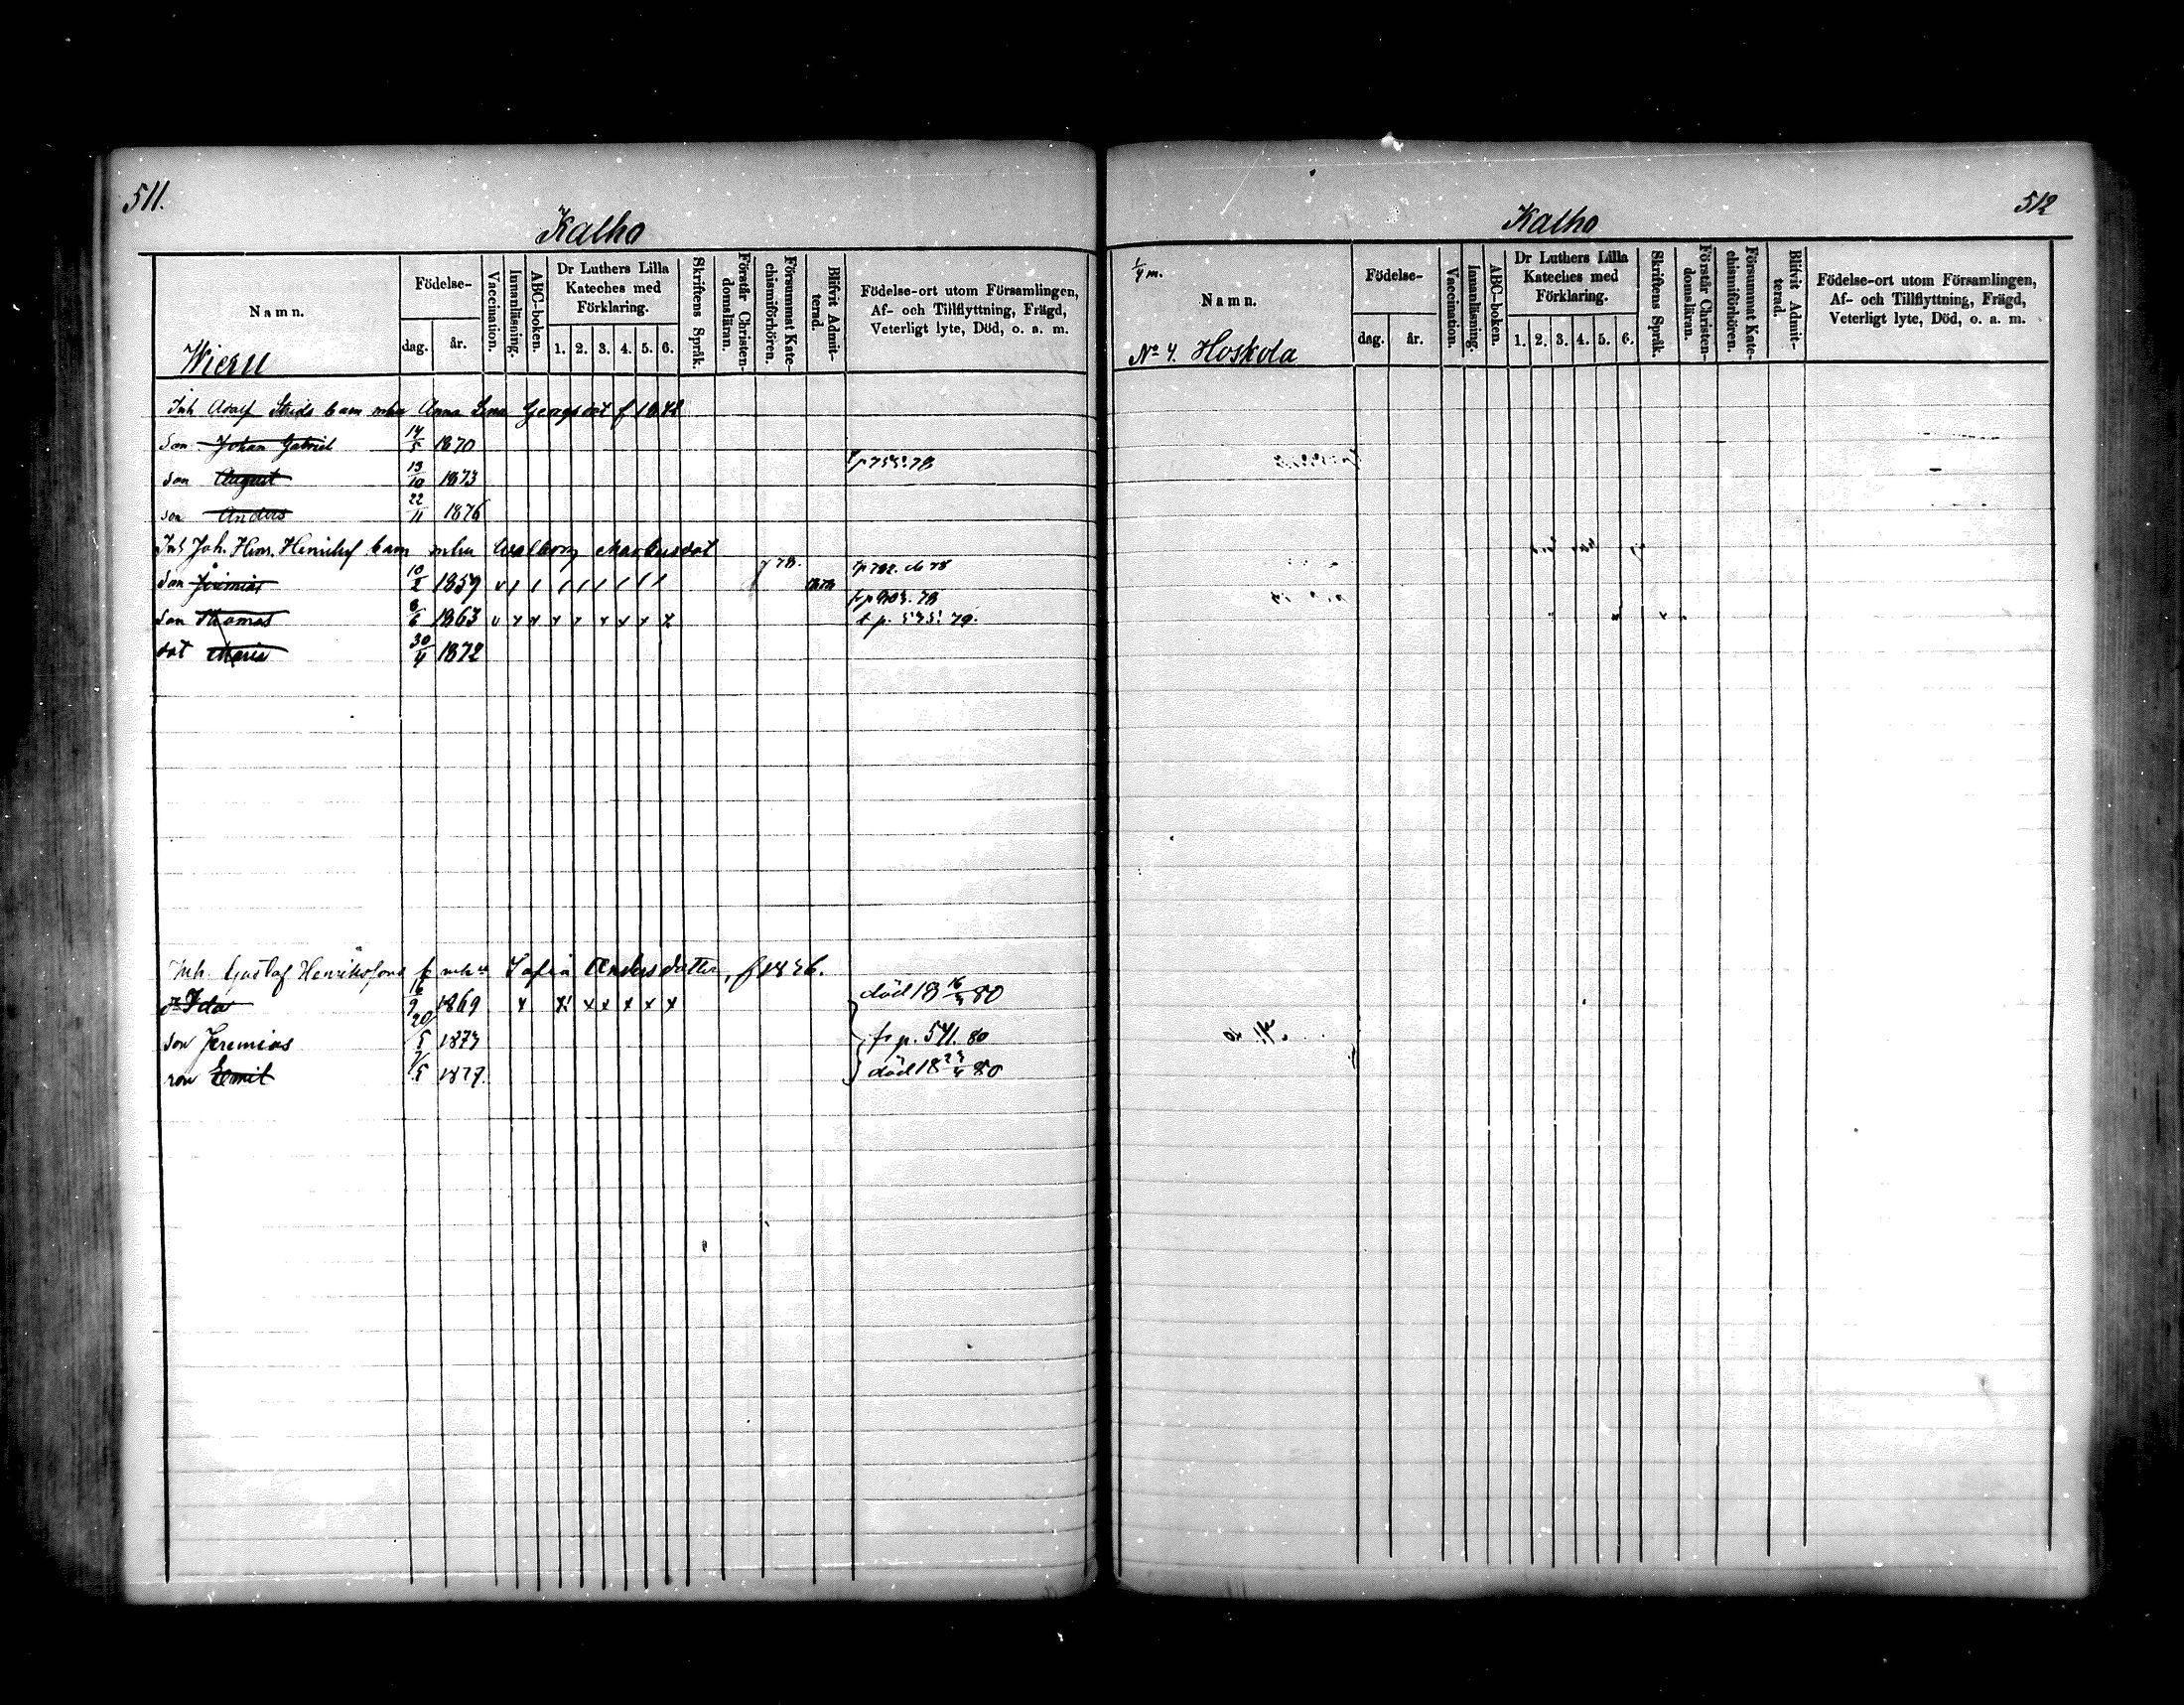 511.
Kalho
Namn.
Födelse-
dag.
år.
Vaccination.
Innanläsning.
ABC-boken.
Dr Luthers Lilla
Kateches med
Förklaring.
1. 2. 3. 4. 5. 6.
Skriftens Språk.
Förstår Christen-
domsläran.
Försummat Kate-
chismiförhören.
Blifvit Admit-
terad.
Födelse-ort utom Församlingen,
Af- och Tillflyttning, Frägd,
Veterligt lyte, Död, o. a. m.
Wieru
Inh Adolf Strids barn mhu Anna Lena Georgsdot f 1842
Son Johan Gabriel 14/5 1870
son August 13/10 1873 fp 755. 78
son Anders 22/11 1876
Inh Joh. Henr. Henrikss barn mhu Walborg Markusdot
Son Jeremias 10/2 1859 v / / / / / / / / 78. 1878
son Thomas 8/6 1863 v x x x x x x x x t p. 535. 79.
dot Maria 30/4 1872
Inh. Gustaf Henrikssons b mhu Sofia Andersdotter, f 1836.
dr Ida 16/9 1869 x x x x x x x död 18 16/3 80
son Jeremias 20/5 1873 fr p. 541. 80
son Emil 7/5 1877. död 18 23/4 80
512
Kalho
1/4 m.
Namn.
No 4. Hoskola
Födelse-
dag.
år.
Vaccination.
Innanläsning.
ABC-boken.
Dr Luthers Lilla
Kateches med
Förklaring.
1. 2. 3. 4. 5. 6.
Skriftens Språk.
Förstår Christen-
domsläran.
Försummat Kate-
chismiförhören.
Blifvit Admit-
terad.
Födelse-ort utom Församlingen,
Af- och Tillflyttning, Frägd,
Veterligt lyte, Död, o. a. m.